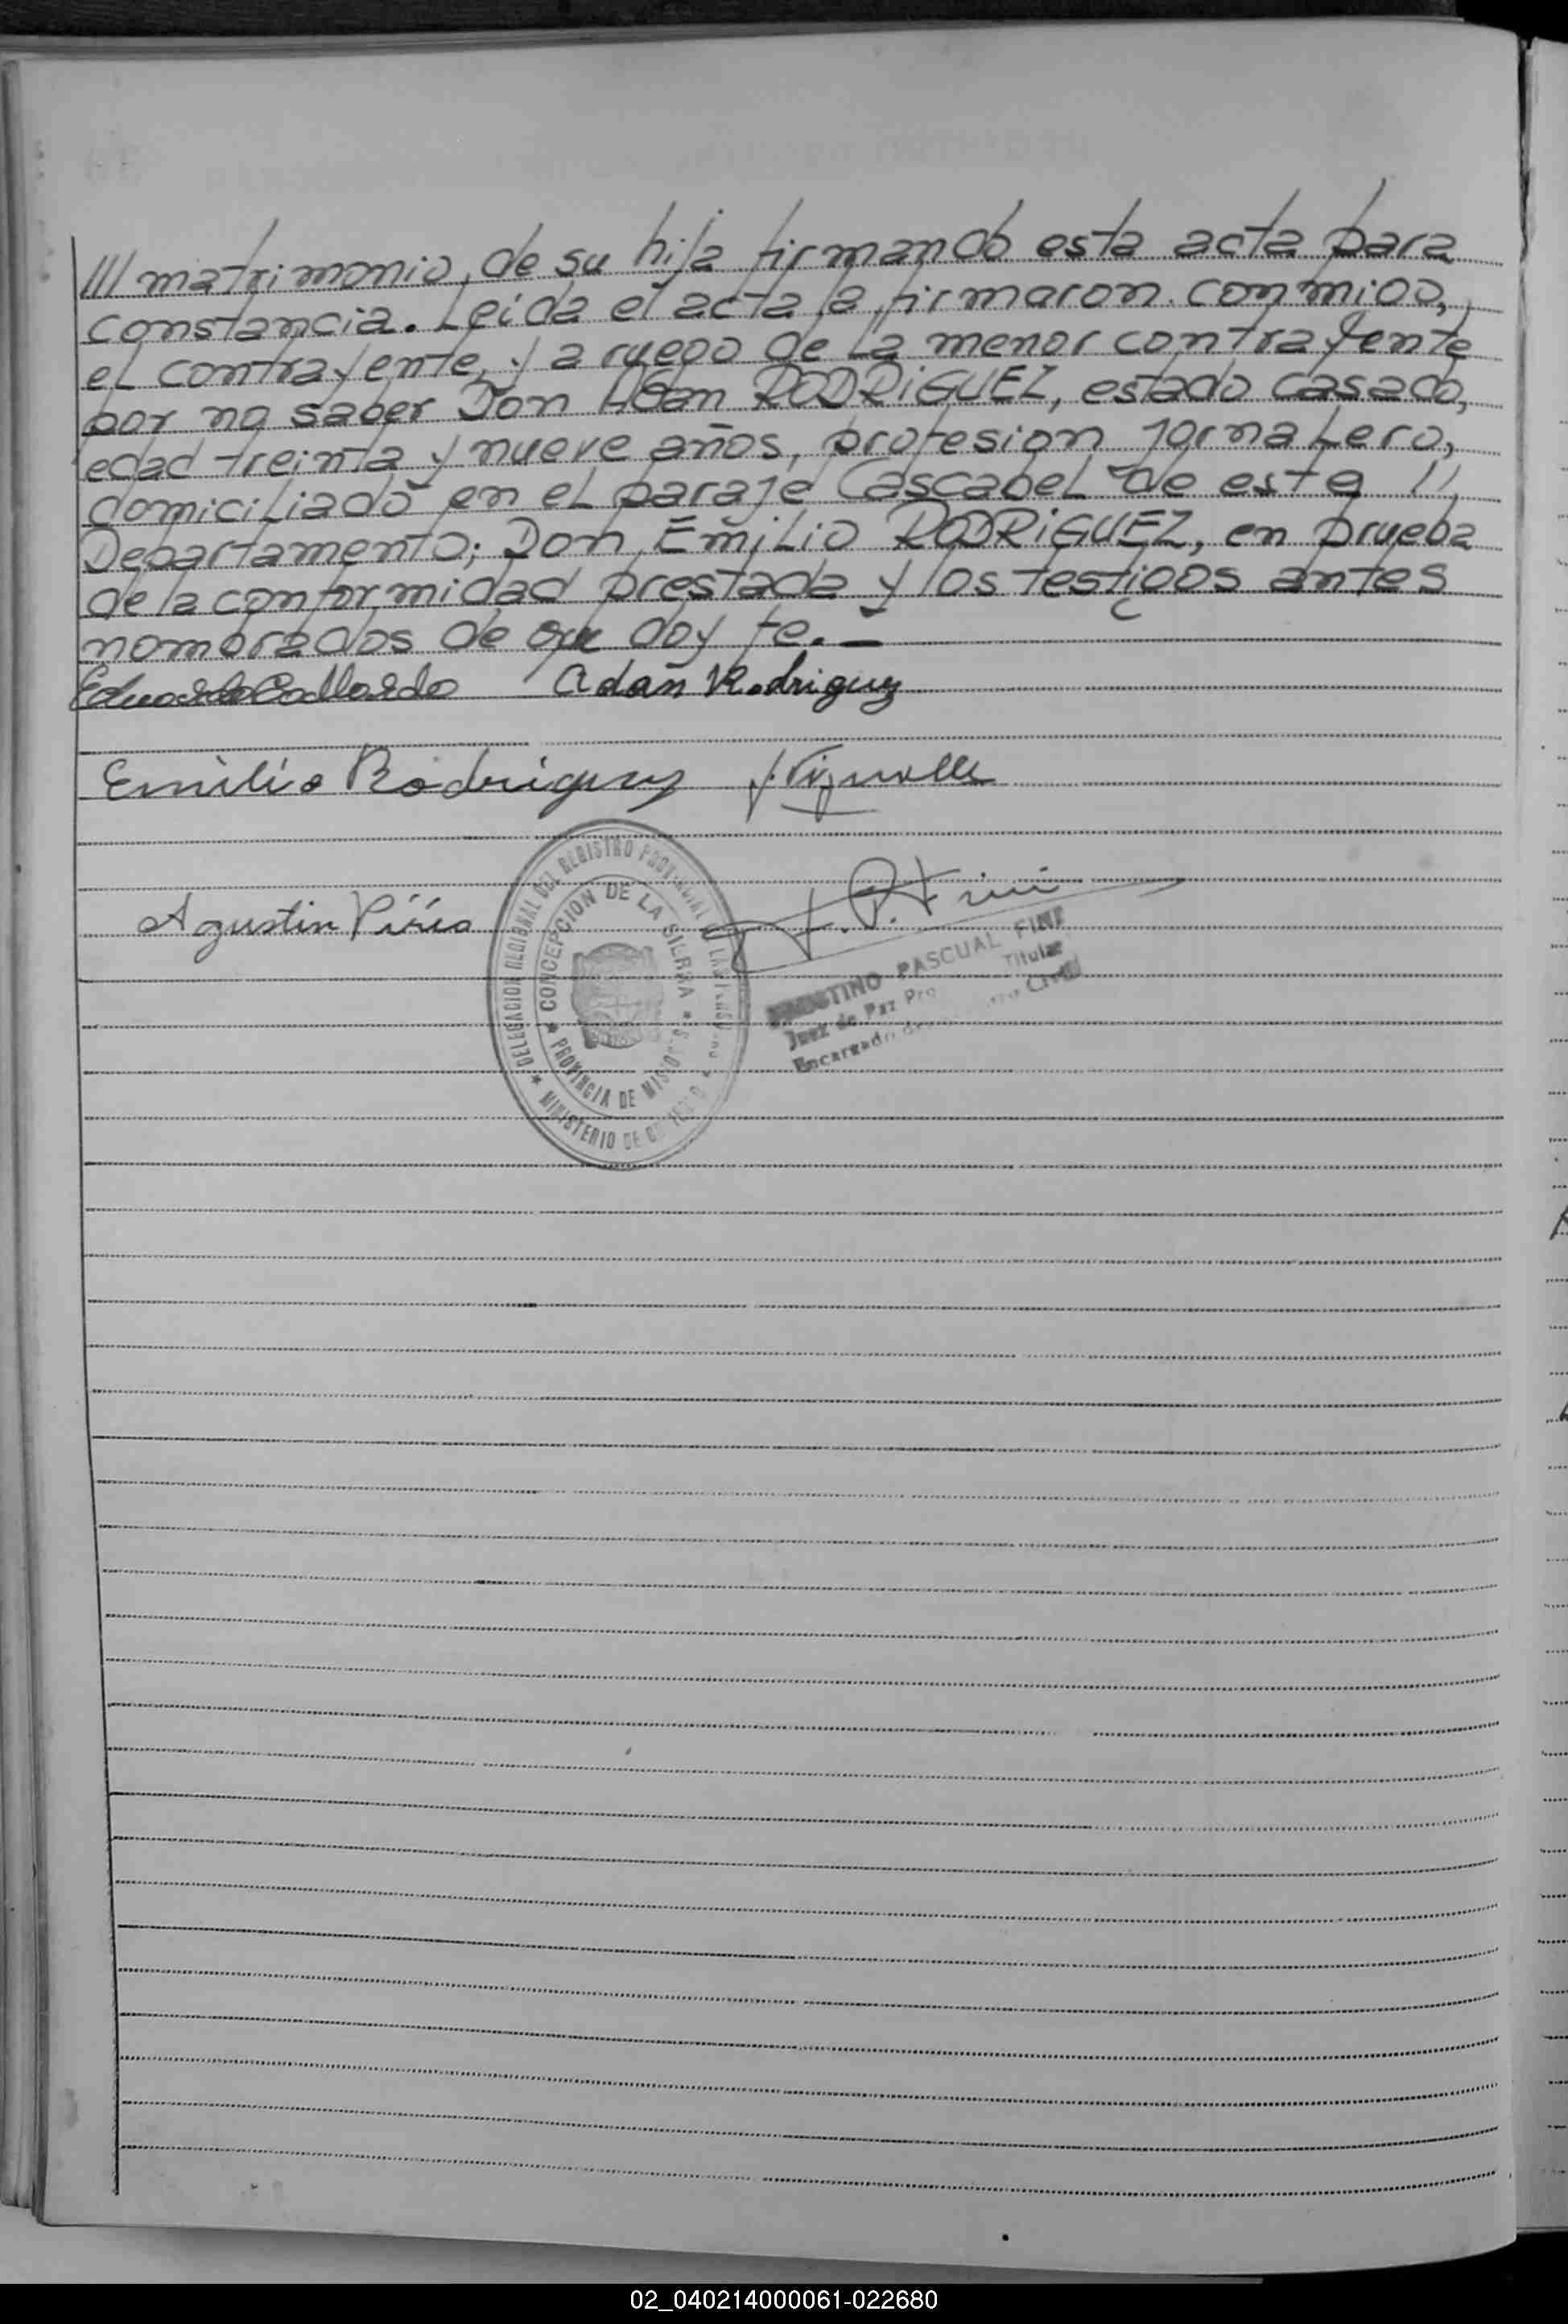 /// matrimonio, de su hija firmando esta acta para
constancia. Leida el acta la firmaron conmigo,
el contrayente, y a ruego de la menor contrayente
por no saber Don Adan RODRiGUEZ, estado casado,
edad treinta y nueve años, profesion jornalero,
domiciliado en el paraje Cascabel de este //
Departamento; Don Emilio RODRiGUEZ, en prueba
de la conformidad prestada y los testigos antes
nombrados de que doy fe. —
Eduardo Gallardo Adan Rodriguez
Emilio Rodriguez J. Vignolle
Agustin Piris
DELEGACION REGIONAL DEL REGISTRO PROVINCIAL DE LAS PERSONAS
CONCEPCION DE LA SIERRA
PROVINCIA DE MISIONES
MINISTERIO DE GOBIERNO
PASCUAL FINI
Juez de Paz Titular
Encargado Civil
02_040214000061-022680